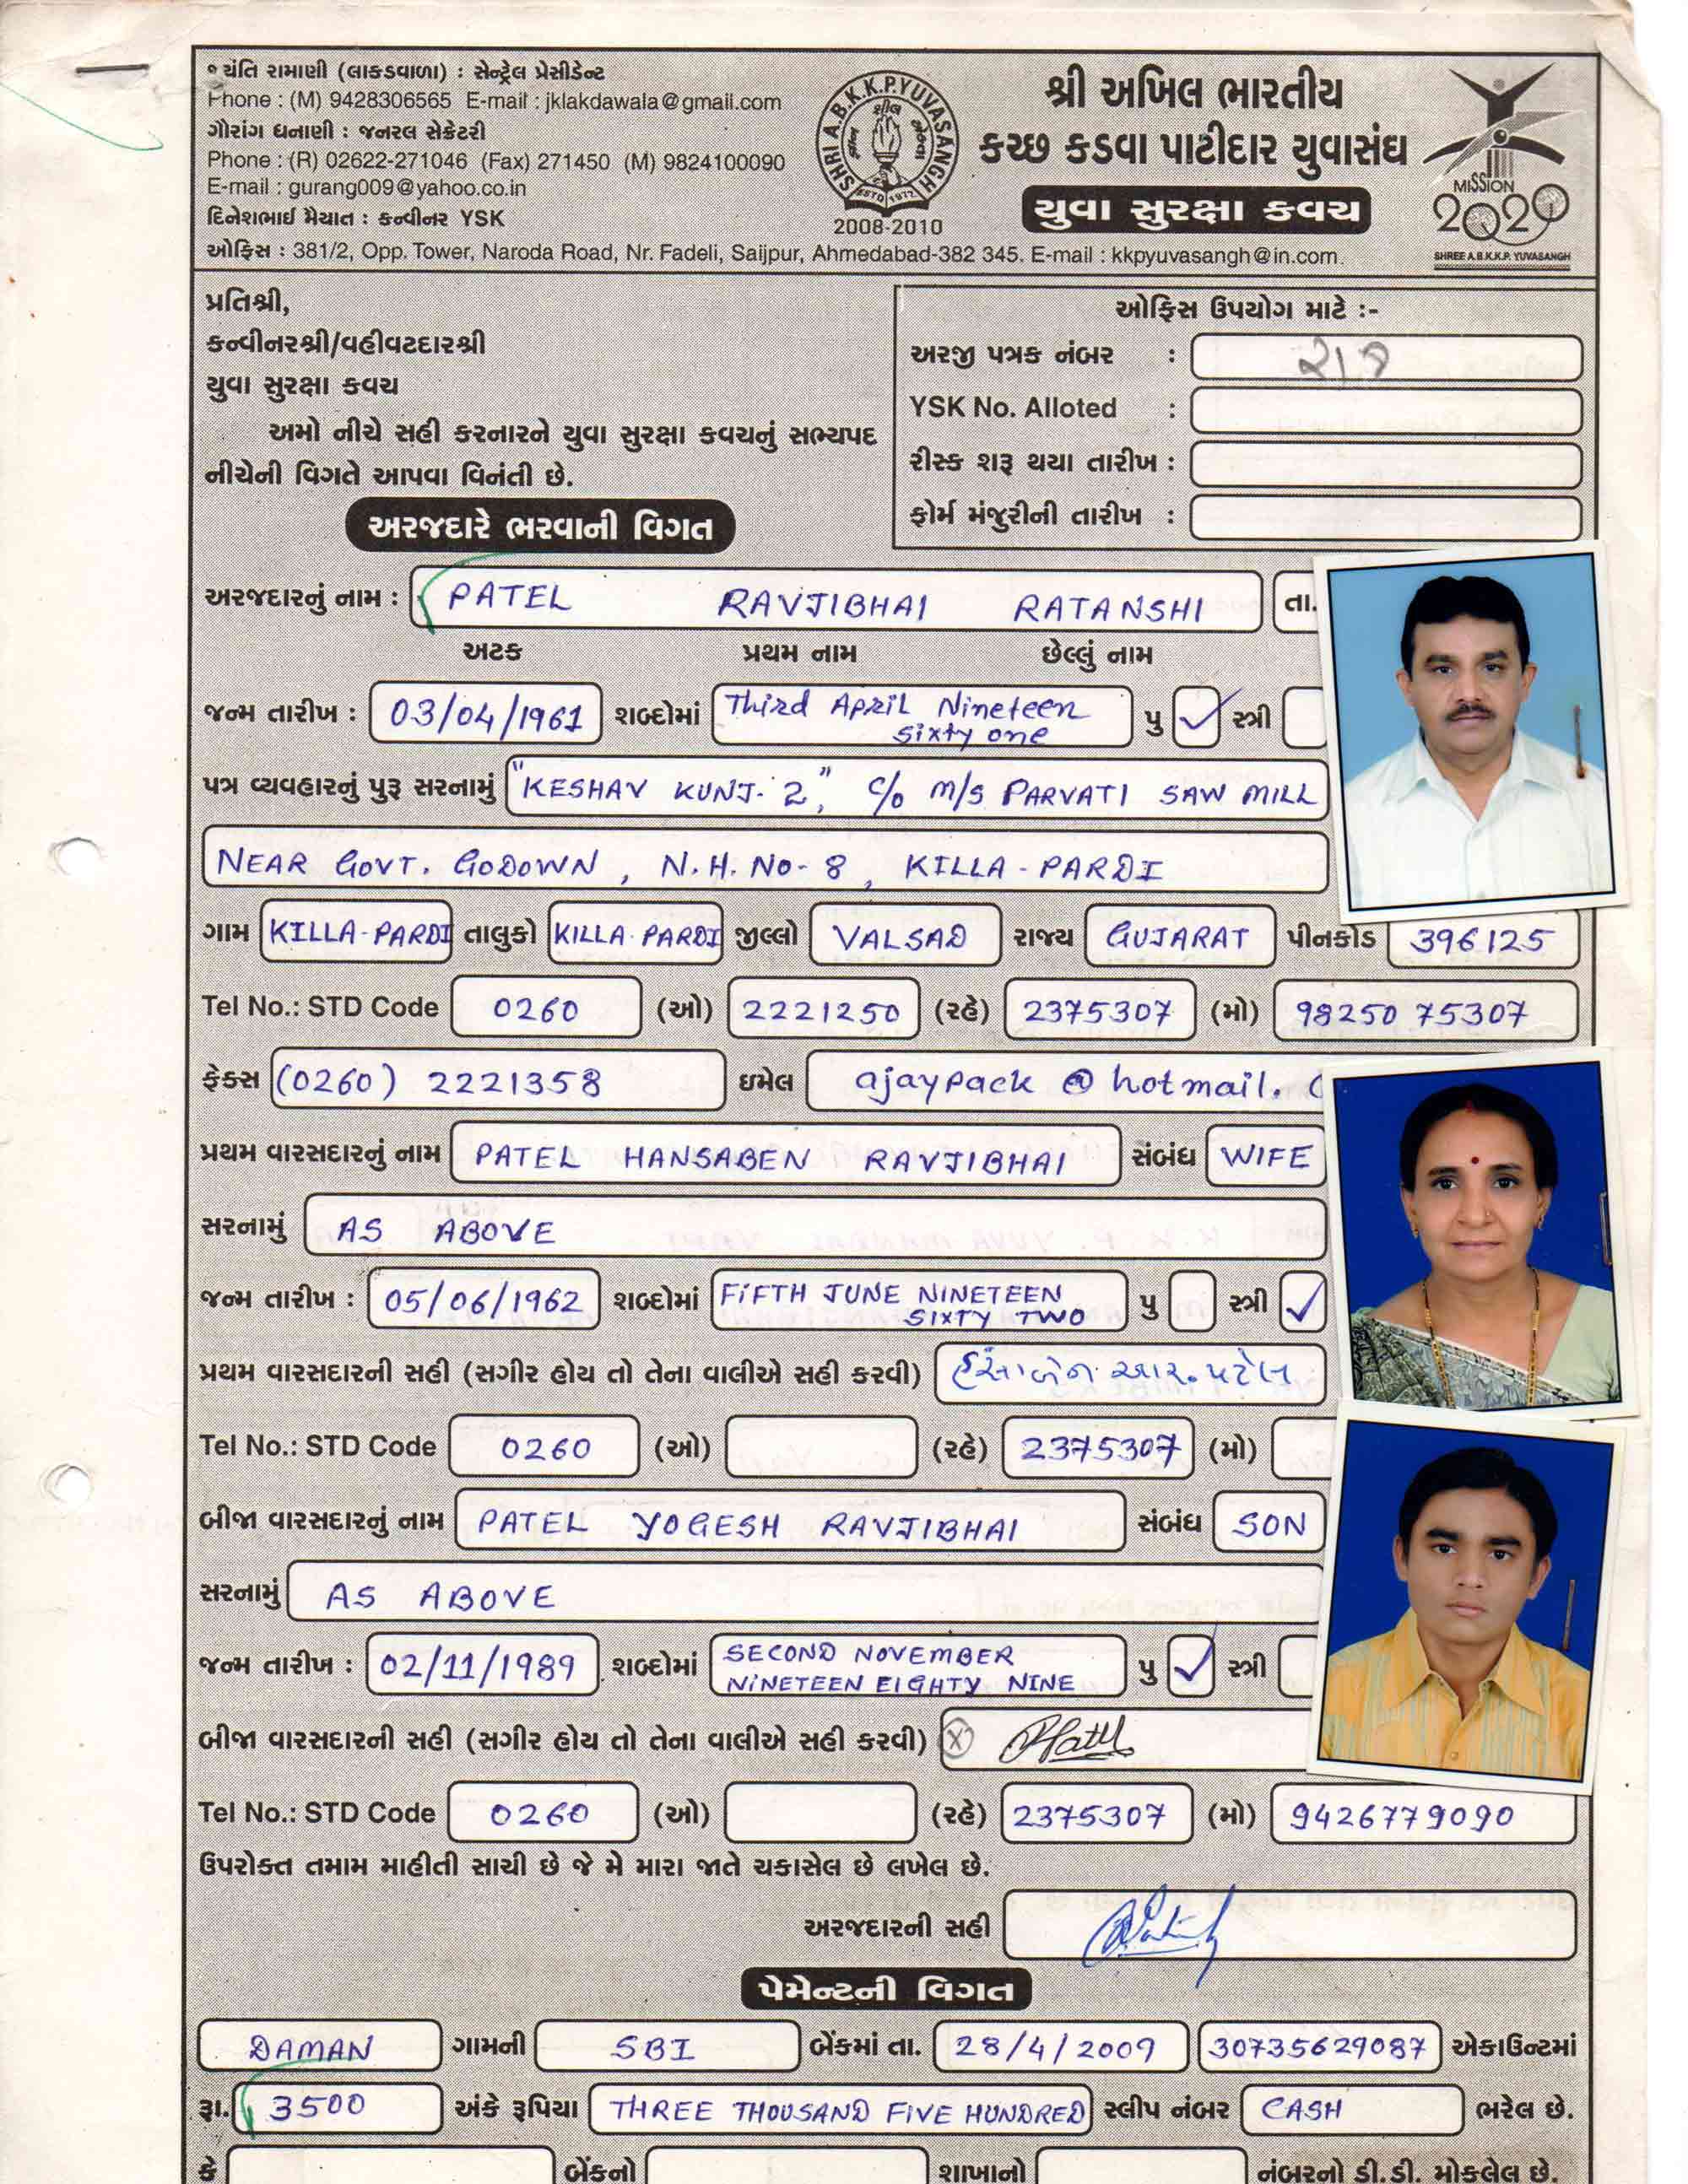 યંતિ રામાણી (લાકડાવાળા) : સેન્ટ્રેલ પ્રેસીડેન્ટ
Phone : (M) 9428306565 E-mail : jklakdawala@gmail.com
ગૌરાંગ ધનાણી : જનરલ સેક્રેટરી
Phone : (R) 02622-271046 (Fax) 271450 (M) 9824100090
E-mail : gurang009@yahoo.co.in
દિનેશભાઈ મૈયાત : કન્વીનર YSK
ઓફિસ : 381/2, Opp. Tower, Naroda Road, Nr. Fadeli, Saijpur, Ahmedabad-382 345. E-mail : kkpyuvasangh@in.com.
SHRI A.B.K.K.P. YUVASANGH
ESTD 1977
2008-2010
શ્રી અખિલ ભારતીય
કચ્છ કડવા પાટીદાર યુવાસંઘ
યુવા સુરક્ષા કવચ
MISSION
2020
SHREE A.B.K.K.P. YUVASANGH
પ્રતિશ્રી,
કન્વીનરશ્રી/વહીવટદારશ્રી
યુવા સુરક્ષા કવચ
અમો નીચે સહી કરનારને યુવા સુરક્ષા કવચનું સભ્યપદ
નીચેની વિગતે આપવા વિનંતી છે.
ઓફિસ ઉપયોગ માટે :-
અરજી પત્રક નંબર :
YSK No. Alloted :
રીસ્ક શરૂ થયા તારીખ :
ફોર્મ મંજુરીની તારીખ :
અરજદારે ભરવાની વિગત
અરજદારનું નામ : PATEL RAVJIBHAI RATANSHI તા.
અટક પ્રથમ નામ છેલ્લું નામ
જન્મ તારીખ : 03/04/1961 શબ્દોમાં Third April Nineteen sixty one પુ ✓ સ્ત્રી
પત્ર વ્યવહારનું પુરૂ સરનામું "KESHAV KUNJ-2", C/o M/S PARVATI SAW MILL
NEAR GOVT. GODOWN, N.H. No-8, KILLA-PARDI
ગામ KILLA-PARDI તાલુકો KILLA-PARDI જીલ્લો VALSAD રાજ્ય GUJARAT પીનકોડ 396125
Tel No.: STD Code 0260 (ઓ) 2221250 (રહે) 2375307 (મો) 98250 75307
ફેક્સ (0260) 2221358 ઇમેલ ajaypack @ hotmail.
પ્રથમ વારસદારનું નામ PATEL HANSABEN RAVJIBHAI સંબંધ WIFE
સરનામું AS ABOVE
જન્મ તારીખ : 05/06/1962 શબ્દોમાં FIFTH JUNE NINETEEN SIXTY TWO પુ સ્ત્રી ✓
પ્રથમ વારસદારની સહી (સગીર હોય તો તેના વાલીએ સહી કરવી) હંસાબેન આર. પટેલ
Tel No.: STD Code 0260 (ઓ) (રહે) 2375307 (મો)
બીજા વારસદારનું નામ PATEL YOGESH RAVJIBHAI સંબંધ SON
સરનામું AS ABOVE
જન્મ તારીખ : 02/11/1989 શબ્દોમાં SECOND NOVEMBER NINETEEN EIGHTY NINE પુ ✓ સ્ત્રી
બીજા વારસદારની સહી (સગીર હોય તો તેના વાલીએ સહી કરવી)
Tel No.: STD Code 0260 (ઓ) (રહે) 2375307 (મો) 9426779090
ઉપરોક્ત તમામ માહીતી સાચી છે જે મે મારા જાતે ચકાસેલ છે લખેલ છે.
અરજદારની સહી
પેમેન્ટની વિગત
DAMAN ગામની SBI બેંકમાં તા. 28/4/2009 30735629087 એકાઉન્ટમાં
રૂા. 3500 અંકે રૂપિયા THREE THOUSAND FIVE HUNDRED સ્લીપ નંબર CASH ભરેલ છે.
કે બેંકનો શાખાનો નંબરનો ડી.ડી. મોકલેલ છે.